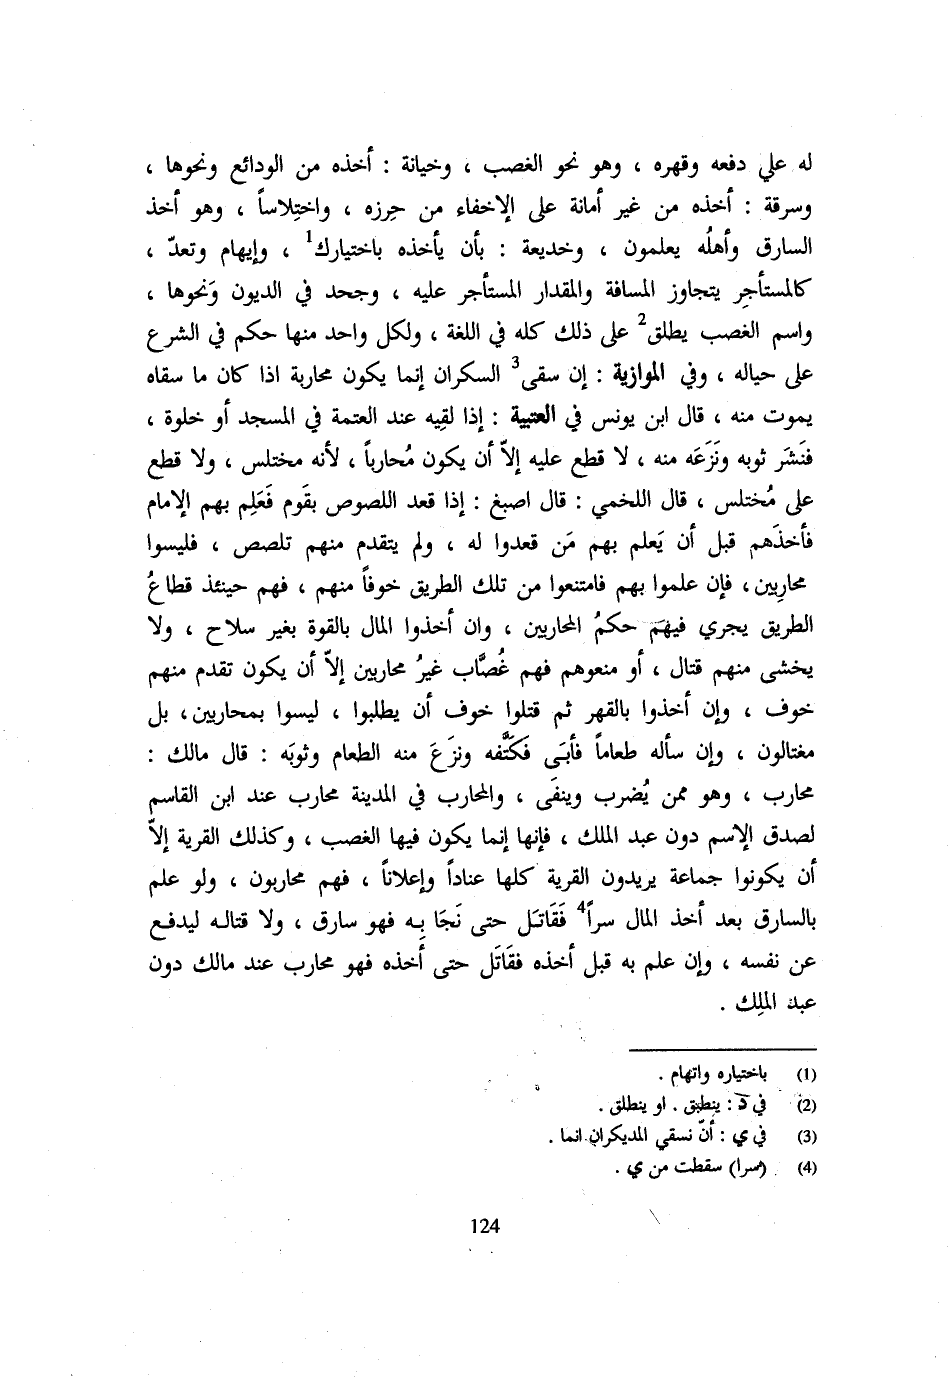 له علي دفعه وقهره ، وهو نحو الغصب ، وخيانة : أخذه من الودائع ونحوها ،
وسرقة : أخذه من غير أمانة على الإخفاء من حِرزه ، واختِلاساً ، وهو أخذ
السارق وأهلُه يعلمون ، وخديعة : بأن يأخذه باختيارك1 ، وإيهام وتعدّ ،
كالمستأجِر يتجاوز المسافة والمقدار المستأجر عليه ، وجحد في الديون وَنحوها ،
واسم الغصب يطلق2 على ذلك كله في اللغة ، ولكل واحد منها حكم في الشرع
على حياله ، وفي الموازية : إن سقى3 السكران إنما يكون محاربة اذا كان ما سقاه
يموت منه ، قال ابن يونس في العتبية : إذا لقِيه عند العتمة في المسجد أو خلوة ،
فَنَشَر ثوبه ونَزَعَه منه ، لا قطع عليه إلاّ أن يكون مُحارباً ، لأنه مختلس ، ولا قطع
على مُختلس ، قال اللخمي : قال اصبغ : إذا قعد اللصوص بقَوم فَعَلِم بهم الإمام
فأخذَهم قبل أن يَعلم بهم مَن قعدوا له ، ولم يتقدم منهم تلصص ، فليسوا
محاربِين ، فإن علموا بهم فامتنعوا من تلك الطريق خوفاً منهم ، فهم حينئذ قطاعُ
الطريق يجري فيهم حكمُ المحاربين ، وان أخذوا المال بالقوة بغير سلاح ، ولا
يخشى منهم قتال ، أو منعوهم فهم غُصَّاب غيرُ محاربين إلاّ أن يكون تقدم منهم
خوف ، وإن أخذوا بالقهر ثم قتلوا خوف أن يطلبوا ، ليسوا بمحاربين، بل
مغتالون ، وإن سأله طعاماً فأبَى فَكَتَّفه ونزَعَ منه الطعام وثوبَه : قال مالك :
محارب ، وهو ممن يُضرب وينفَى ، والمحارب في المدينة محارب عند ابن القاسم
لصدق الإسم دون عبد الملك ، فإنها إنما يكون فيها الغصب ، وكذلك القرية إلاّ
أن يكونوا جماعة يريدون القرية كلها عناداً وإعلاناً ، فهم محاربون ، ولو علم
بالسارق بعد أخذ المال سراً4 فَقَاتَل حتى نَجَا بِه فهو سارق ، ولا قتاله ليدفع
عن نفسه ، وإن علم به قبل أخذه فقَاتَل حتى أخذه فهو محارب عند مالك دون
عبد الملِك .
(1) باختياره واتهام .
(2) في د : ينطبق . او ينطلق .
(3) في ي : أنّ نسقي المديكران انما .
(4) (سرا) سقطت من ي .
124